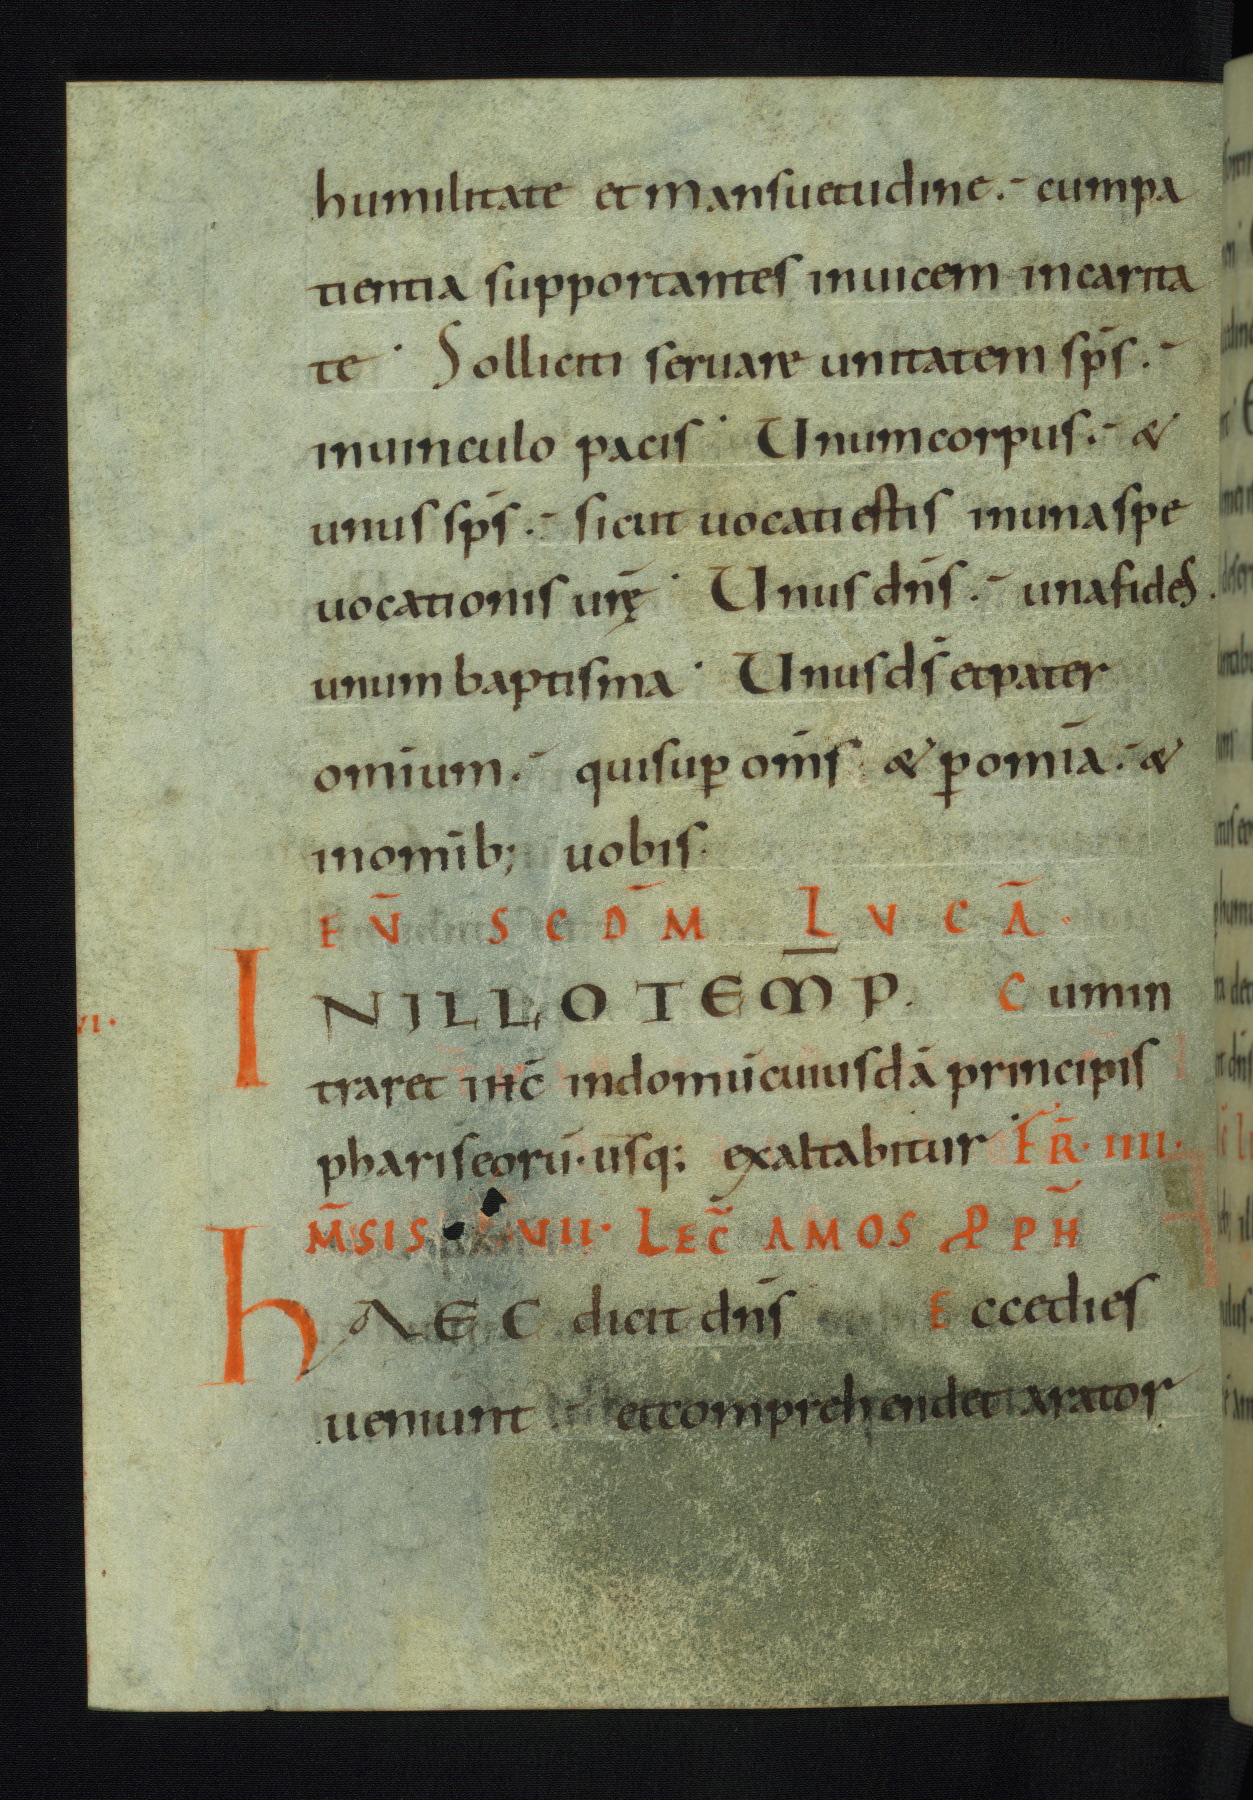 humilitate et mansuetudine. cumpa
tientia supportantes inuicem incarita
te · Solliciti seruare unitatem sp̄s.
inuinculo pacis · Unumcorpus. &
unus sp̄s. sicut uocatiestis inunaspe
uocationis ur̄ę · Unus dn̄s. unafides.
unum baptisma · Unus ds̄ etpater
omīum. quisup̲ om̄s & p̲ omīa. &
inomīb; uobis.
EṼ SCDM̄ LVCĀ.
INILLOTEM̄P. Cumin
VI.
traret ih̄c indomū cuiusdā principis
phariseorū. usq; exaltabitur FR̄. IIII.
M̄SIS VII. LEC̄ AMOS PPH̄
hAEC dicit dn̄s Eccedies
ueniunt etcomprehendet arator